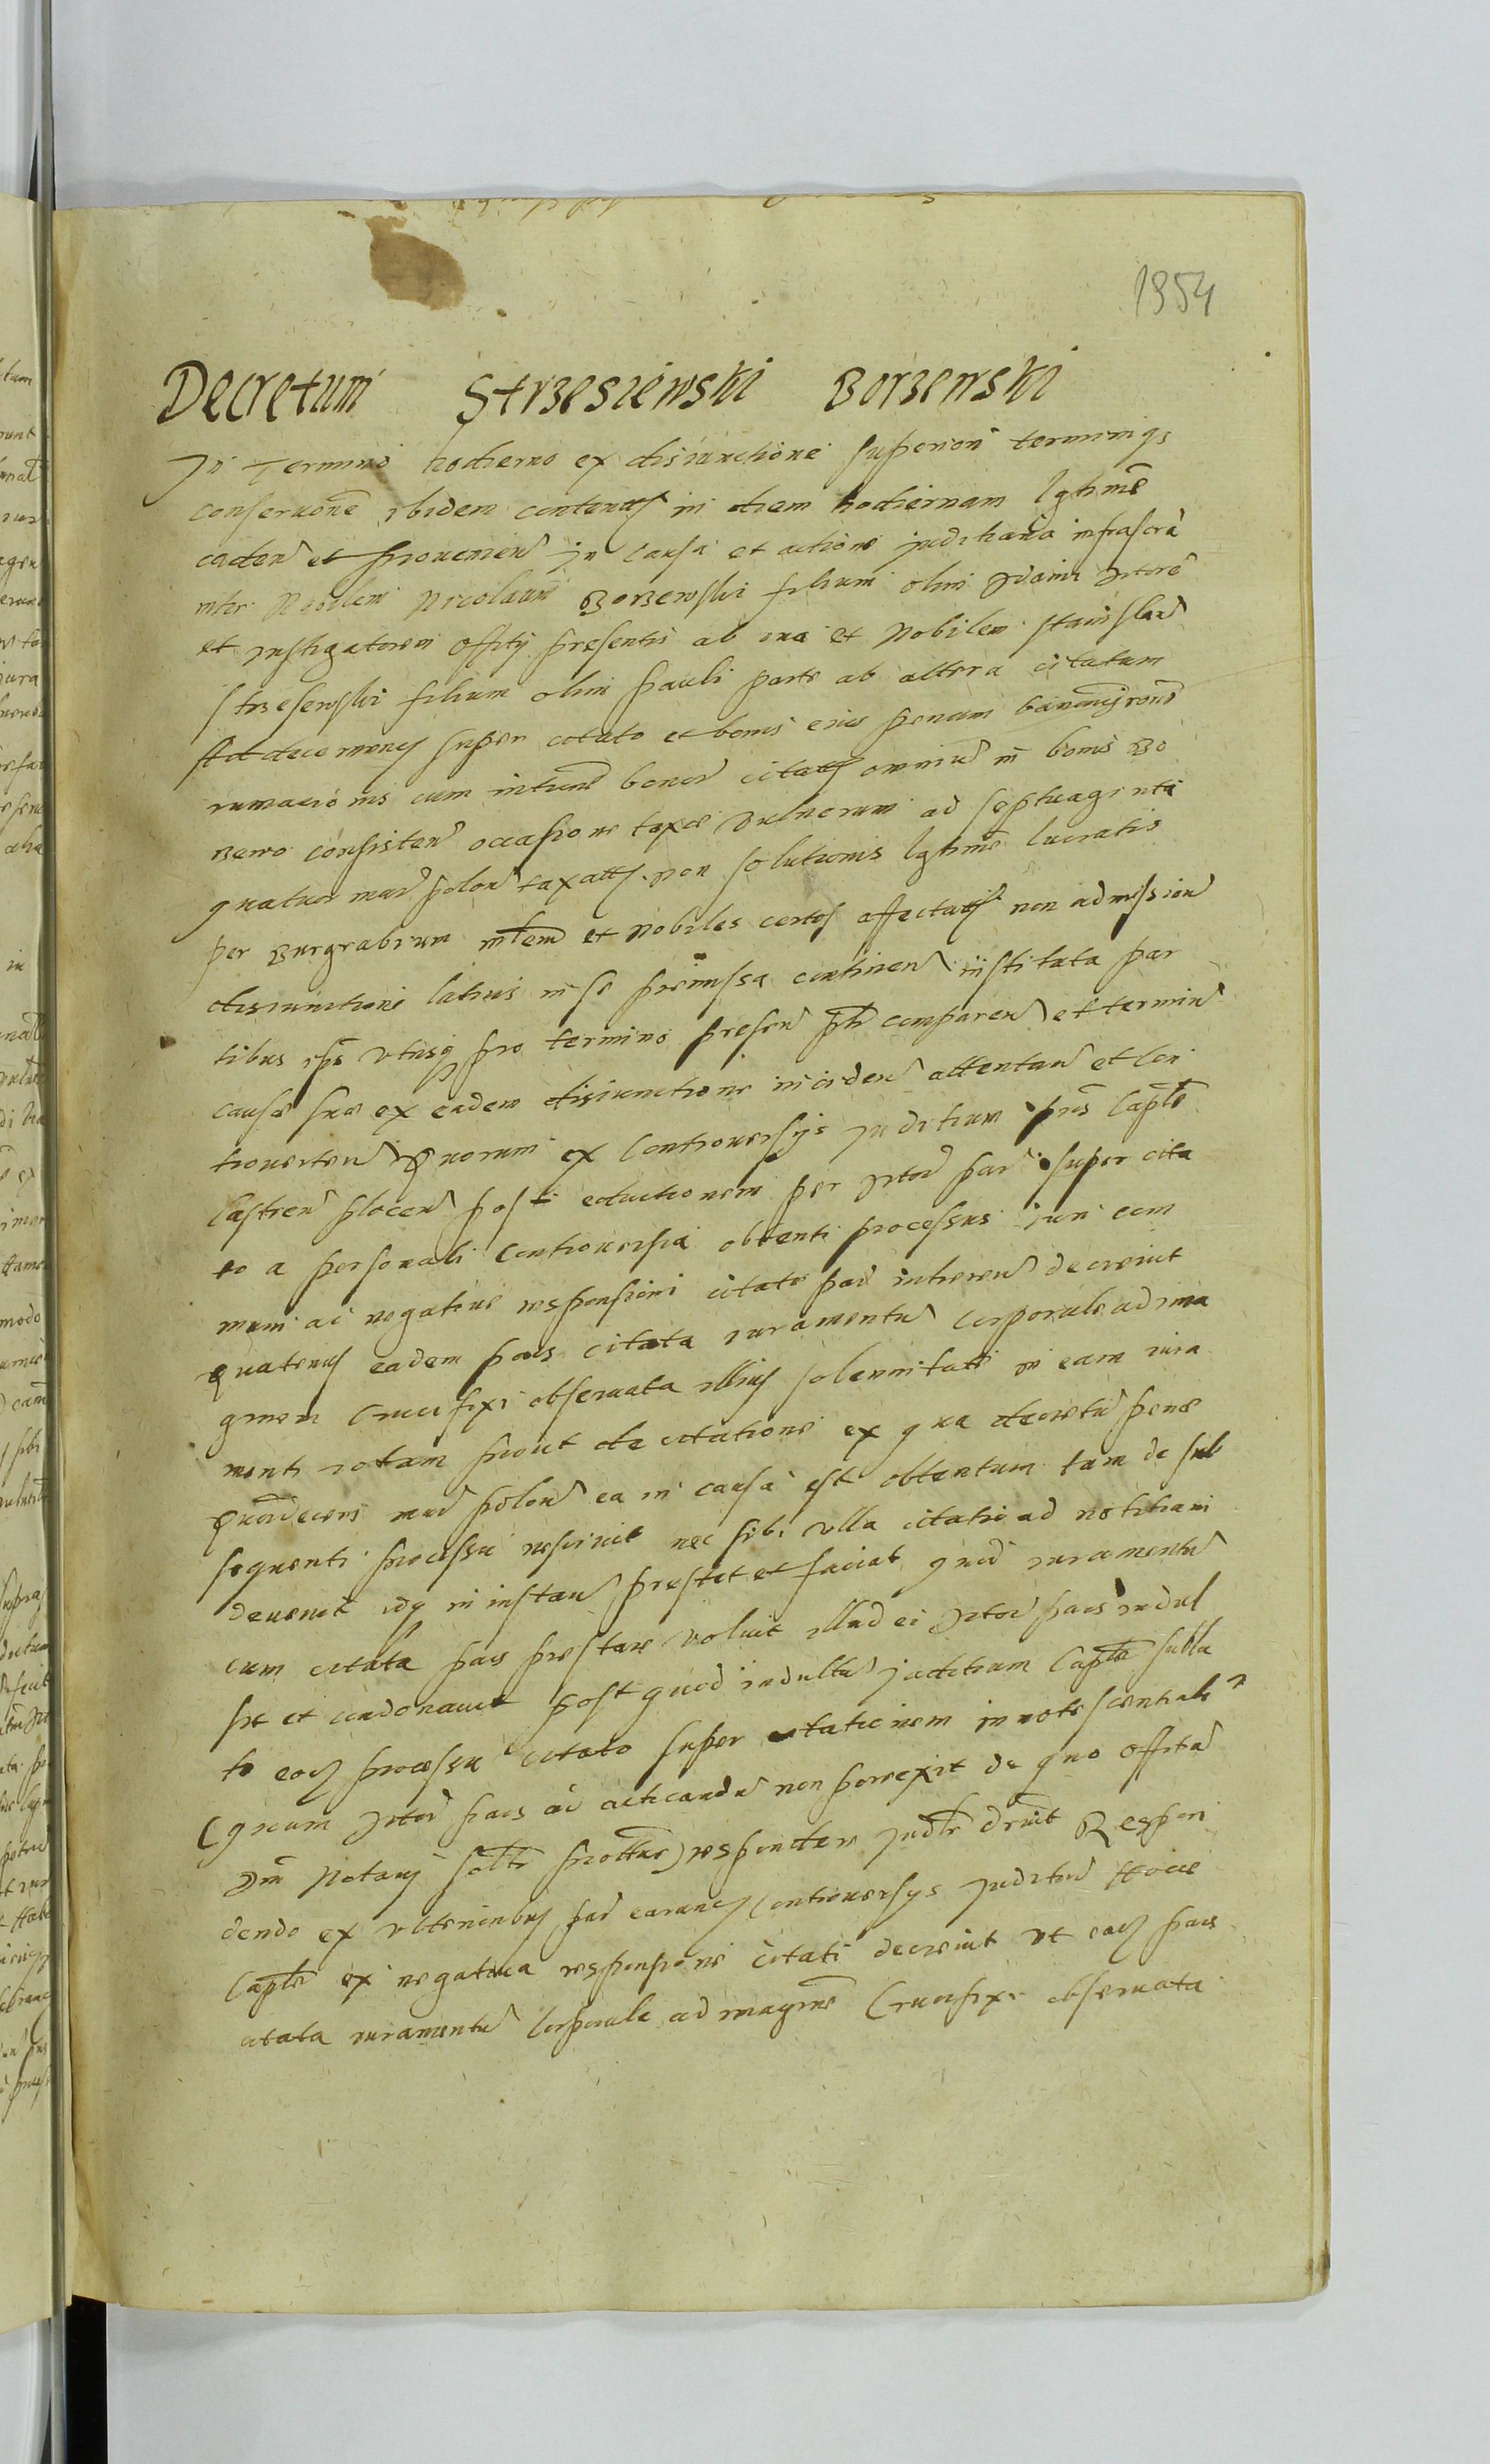 1354
Decretum Strzesiewski Borzewski
In Termino hodierno ex disiunctione superiori terminiqs
conseruone ibidem contentus in diem hodiernam lgtime
caden et proueniens In Causa et actione judiciaria infrascra
inter Nobilem Nicolaum Borzewski filium olim Adami Actore
et instigatorem officy presentis ab una et Nobilem Stanislau
Strzesewski filium olim Pauli parte ab altera citatum
super citato et bonis eius penam
cum bonor citati omniu in bonis Bo
rzewo consisten occasione taxae vulnerum ad septuaginta
quatuor mar polon taxatis non solutionis lgtime lucratis
per Burgrabium et Nobiles certos affectatis non admission
disiunctione latius in se premissa continen instituta par
tibus ips utrisq pro termino presen comparen et termin
causae suae ex eadem disiunctione inciden attentan et con
trouerten Quorum ex Controuersijs Juditium pns Caple
Castren plocen post eductionem per Actor par super cita
to a personali Controuersia obtenti processus iuri com
muni ac negatiue responsioni citate par inheren decreuit
Quatenus eadem pars citata iuramentu Corporale ad ima
ginem Crucifixi obseruata illius solennitate in eam iura
menti rotam prout de citatione ex qua decretu penae
mar polon ea in causa est obtentum tam de sub
sequenti processu nesciuit nec sibi ulla citatio ad notitiam
deuenit idq in instan prestet et faciat quod iuramentu
cum citata pars prestare voluit illud ei Actor pars indul
sit et condonauit post quod indultu juditium Caple subla
to eoq processu citato super citationem innotescentiale
(quam Actor pars ad acticandu non porrexit de quo offita
Dni Notarij ) respondere Judte dreuit Respon
dendo ex ulterioribus par earunq Controuersijs Juditiu hocce
Caple ex negatiua responsione citati decreuit ut eaq pars
citata iuramentu Corporale ad imagine Crucifixi obseruata